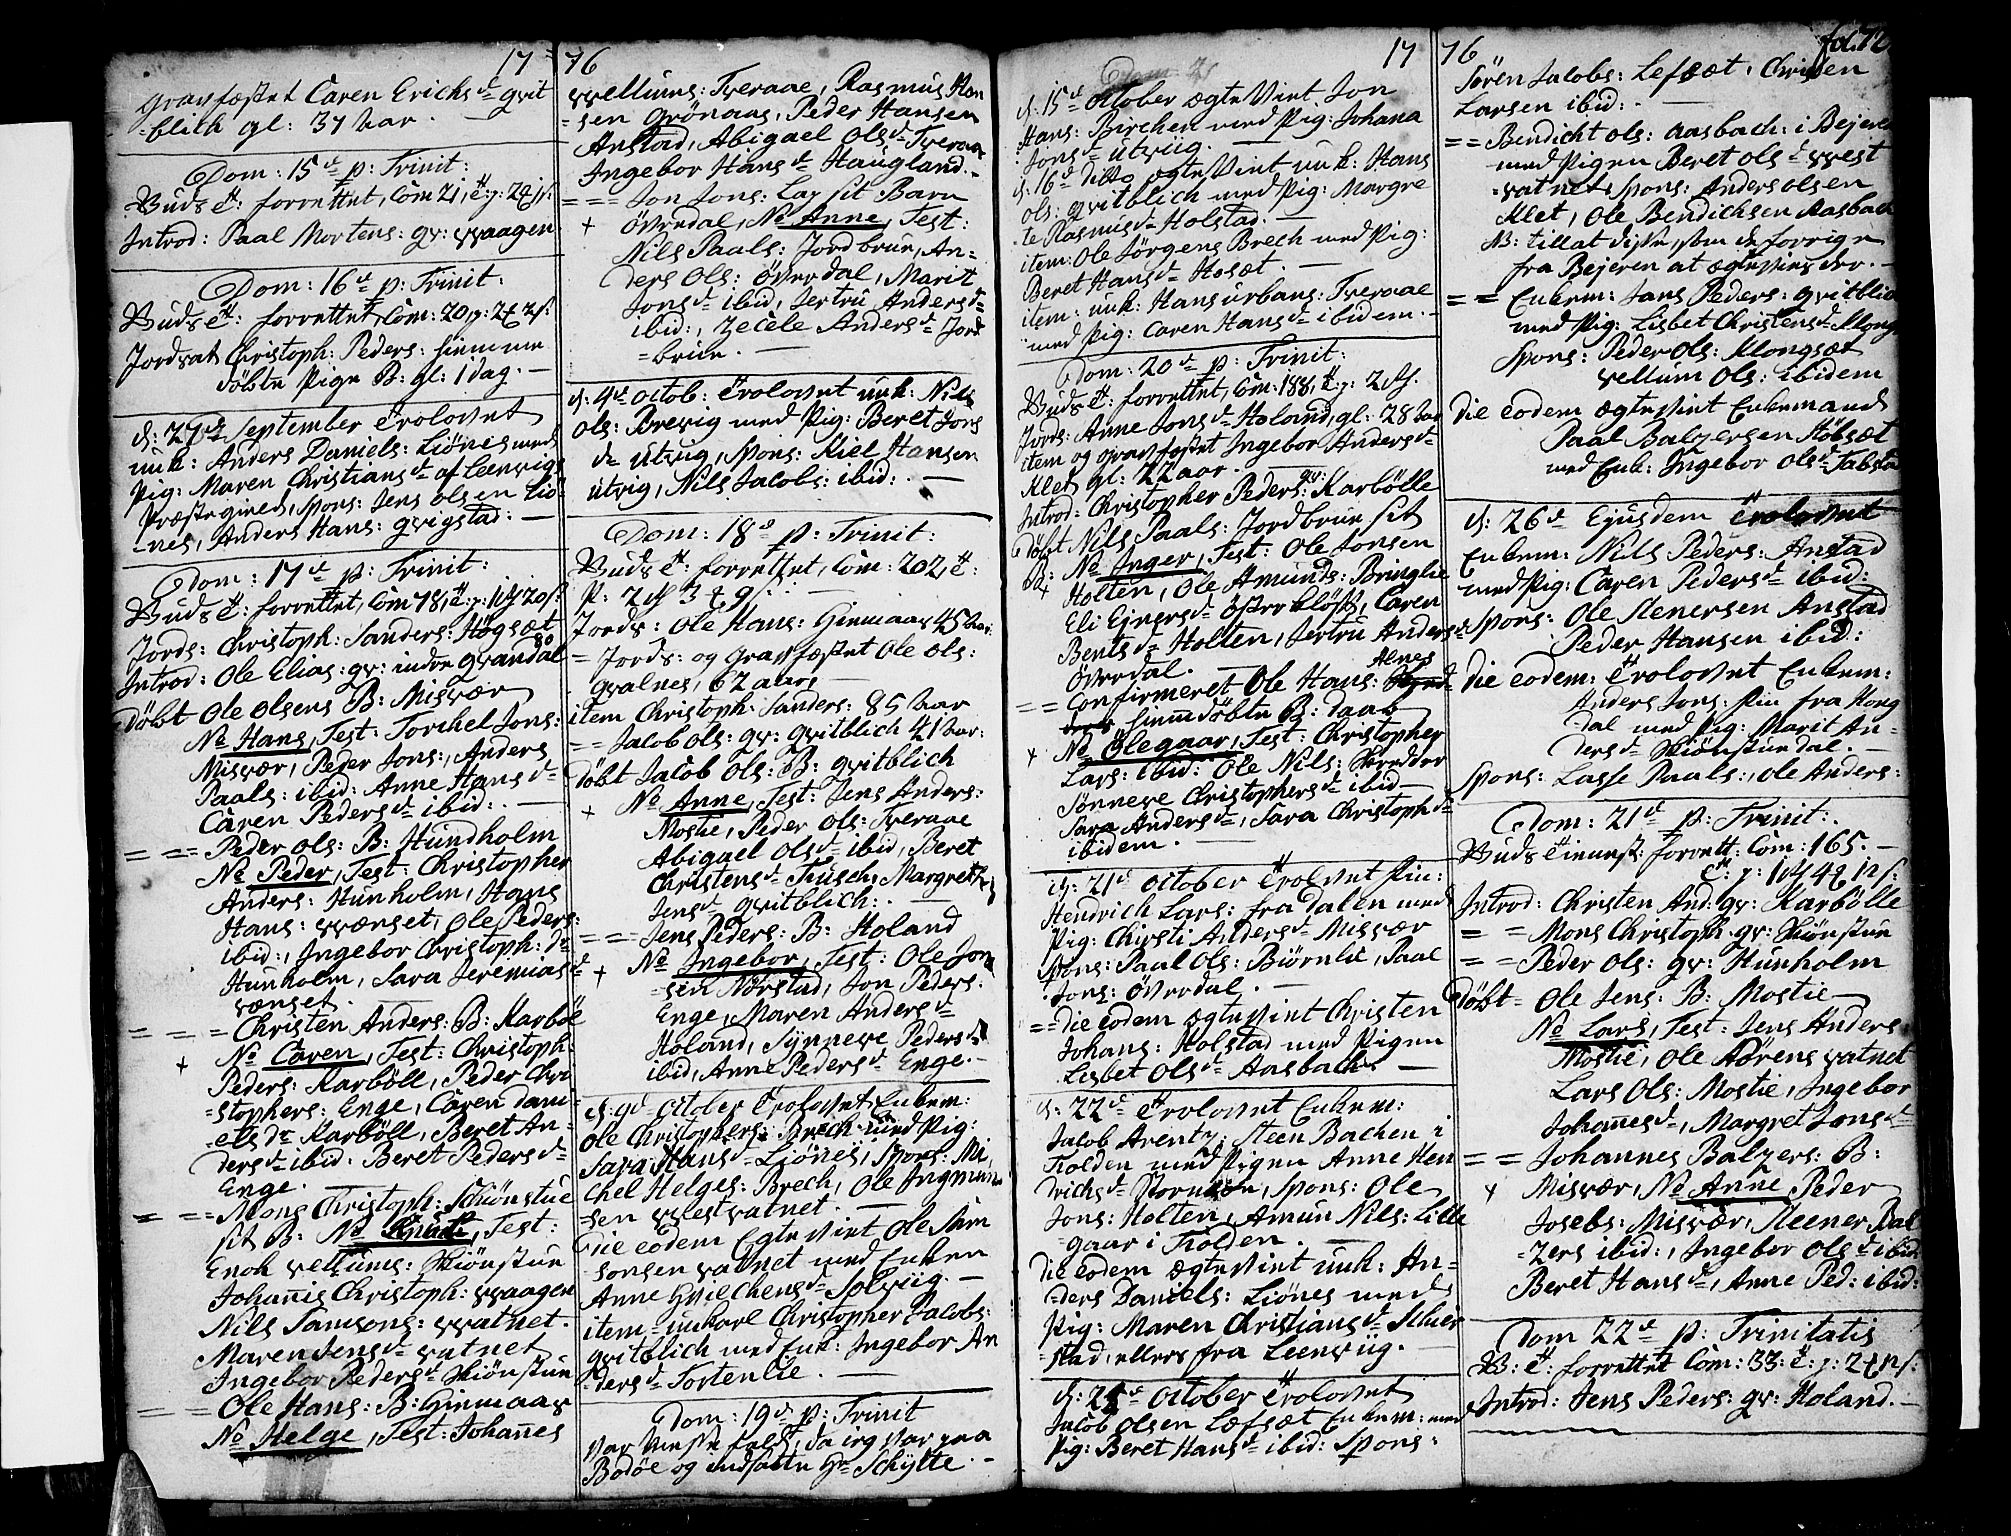 17
gravfæstet Caren Erichsd. qvit
-blich gl: 37 aar. —
Dom: 15de p: Trinit:
forrettet, Com 21,
Introd: Paal Mortens: qv: vaagen
Dom: 16de p: Trinit:
forrettet, Com: 20,
Jordsat Christoph: Peders: hiemme
döbte Pige B: gl: 1 dag. —
d: 27de September trolovet
unk: Anders Daniels: Liönes med
Pig: Maren Christiansd. af Leenvigs
Præstegield, Spons: Jens olsen Liö
-nes, Anders Hans: qvigstad: —
Dom: 17de p: Trinit:
forrettet, Com 78,
Jords: Christoph: Sanders: Høgsæt
Introd: Ole Elias: qv: indre qvandal
Döbt Ole olsens B: Misvær
No Hans, Test: Torchel Jons:
Misvær, Peder Jons:, Anders
Paals: ibid: Anne Hansd.
Caren Pedersd. ibid: —
= = Peder ols: B: Hundholm
No Peder, Test: Christopher
Anders: Hunholm, Hans
Hans: vænset, Ole Peders:
ibid:, Ingebor Christoph: dr
Hunholm, Sara Jeremiasd.
vænset.
= = = Christen Anders: B: Karböl
+ No Caren, Test: Christoph:
Peders: Karböll, Peder Chri
-stophers: Enge, Caren Dani
-elsdr Karböll, Beret An-
dersd. ibid: Beret Pedersd.
Enge. —
= = = Mons Christoph: Skiönstue
sit B: No Knud, Test:
Enoh vellums: Skiönstue
Johanis Christoph: vaagen
Nils Samsons: vatnet.
Maren Jensd. vatnet
Ingebor Pedersd. Skiönstue
= = = Ole Hans: B: Ginmaas
No Helge, Test: Johañes
76
vellums: Tveraae, Rasmus Han
-sen Grönaas, Peder Hansen
Anstad, Abigael Olsd. Tveraa
Ingebor Hansd. Haugland. -
= = = Jon Jons: Lap sit Barn
+ övredal, No Anne, Test:
Nils Paals: Jordbrue, An-
ders Ols: överdal, Marit
Jonsd. ibid, Jertru Andersd.
ibid:, Zecele Andersd. Jord
-brue. —
d: 4de octob: trolovet unk: Nils
Ols: Brevig med Pig: Beret Jons
d. Utvig, Spons: Kiel Hansen
utvig, Nils Jacobs: ibid: . —
Dom: 18de p: Trinit:
forrettet, Com: 202,
Jords: Ole Hans: Ginmaas 45 aar.
= Jords: og gravfæstet Ole Ols:
qvalnes, 62 aar,
item Christoph: Sanders: 85 aar
= = Jacob ols: qv: qvitblich 41 aar:
Döbt Jacob Ols: B: qvitblich
+ No Anne, Test: Jens Anders:
Mostie, Peder Ols: Tveraae
Abigael Olsd. ibid, Beret
Christensd. Tusch: Margrethe
Jensd. qvitblich: . —
= = = Jens Peders: B: Holand
+ No Ingebor, Test: Ole Jon
-sen Norstad, Jon Peders:
Enge, Maren Andersd.
Holand, Synneve Pedersd.
ibid, Anne Pedersd. Enge. -
d: 9de October trolovet Enkem:
Ole Christophers: Brech med Pig:
Sara Hansd. Liönes, Spons: Mi
chel Helges: Brech, Ole Ingmun
-sen vestvatnet. —
Die eodem Egteviet Ole Sam
-sonsen vatnet med Enken
Anne Solvüg. —
item unkarl Christopher Jacobs:
qvitblich med Enk: Ingebor An
-dersd. Tortenlie. —
Dom: 19de p: Trinit
var Messefald, da ieg var paa
Bodöe og indsatte Hr Schytte. -
17
d: 15de October ægteviet Jon
Hans: Birchen med Pig: Johana
Jonsd. utvüg. —
d: 16de ditto ægteviet unk: Hans
Ols: qvitblich med Pig: Margre
-te Rasmusd. Holstad. —
item: Ole Sörgens Brech med Pig:
Beret Hansd. Hosæt. —
item: unk: Hans urbans: Tveraae
med Pig: Caren Hansd. ibidem. -
Dom: 20de p: Trinit:
forrettet, Com: 188,
Jords: Anne Jonsd. Holand, gl: 28 aar
item og gravfæstet Ingebor Andersd.
Klet gl: 22 aar. —
Introd: Christopher Peders: qv: Karbölle
Döbt Nils Paals: Jordbrue sit
B: No Inger, Test: Ole Jonsen
+ Holten, Ole Amunds: Bringlie
Eli Ejnersd. östreklöft, Caren
Bentsd. Holten, Jertru Andersd.
Övredal. —
= = Confirmeret Ole Hans: Alnes
hiemdöbte B: daab
+ No Olegaar, Test: Christopher
Lars: ibid: Ole Nils:
Sønneve Christophersd. ibid —
Sara Andersd., Sara Christophd.
ibidem. —
d: 21de October trolovet Fin:
Hendrich Lars: fra dalen med
Pig: Chirsti Andersd. Misvær
Spons: Paal Ols: Biörnlie, Paal
Jons: övredal. —
= = die eodem ægteviet Christen
Johans: Holstad med Pigen
Lisbet Olsd. Aasbach. —
d: 22de trolovet Enkem:
Jacob Arentz: Steen Bachen i
Folden med Pigen Anne Hen
drichsd. Spons: Ole
Jons: Holten, Amun Nils: Lille
-gaar i Folden. —
Die eodem ægteviet unk: An-
-ders Daniels: Liönes med
Pig: Maren Christiansd.
-stad, ellers fra Leenvüg. —
October trolovet
Jacob Olsen Læfsæt Enkem: med
Pig: Beret Hansd. ibid: Spons:
76
fol. 72
Sören Jacobs: Lefsæt, Christen
Larsen ibid: . —
= = Bendicht Ols: Aasbach: i Bejeren
med Pigen Beret Olsd. vest
-vatnet, Spons: Anders olsen
Klet, Ole Bendichsen Aasbach
NB: tillat disse, som de forrige
fra Bejeren at ægtevies der. -
= = Enkem: Jans Peders: qvitblich
med Pig: Lisbet Christensd. Klong
Spons: Peder Ols: Klongsæt
vellum Ols: ibidem
Die eodem ægteviet Enkemand
Paal Balzersen Höbsæt
med Enk: Ingebor Olsd.
d: 26de Ejusdem trolovet
Enkem: Nils Peders: Anstad
med Pig: Caren Pedersd. ibid:
Spons: Ole Stenersen Anstad
Peder Hansen ibid:
Die eodem: trolovet Enkem:
Anders Jons: Fin fra Kong
dal med Pig: Marit An-
dersd. Skiönstuedal. —
Spons: Lasse Paals:, Ole Anders:
Dom: 21de p: Trinit: .
forrett: Com: 165. —
Introd: Christen And: qv: Karbölle
= = Mons Christoph: qv: Skiönstue
= = Peder Ols: qv: Hunholm
Döbt = Ole Jens: B: Mostie
No Lars, Test: Jens Anders:
Mostie, Ole Sörens vatnet
Lars Ols: Mostie, Ingebor
Johañesd., Margret Jonsd.
= = Johannes Balzers: B:
+ Misvær, No Anne, Peder
Josebs: Misvær, Steener Bal
-zers ibid:, Ingebor Olsd. ibid:
Beret Hansd., Anne Ped: ibid:
Dom 22de p: Trinitatis
forrettet Com: 33:
Introd: Jens Peders: qv: Holand. -